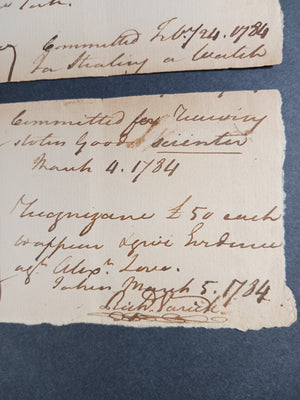 Committed Feby 24. 1784
for Stealing a Watch
Committed for Receiving
stolen Goods scienter
March 4. 1784
Recognizance £50 each
to appear & give Evidence
agt. Alexr. Love.
Taken March 5. 1784
Rich Varick